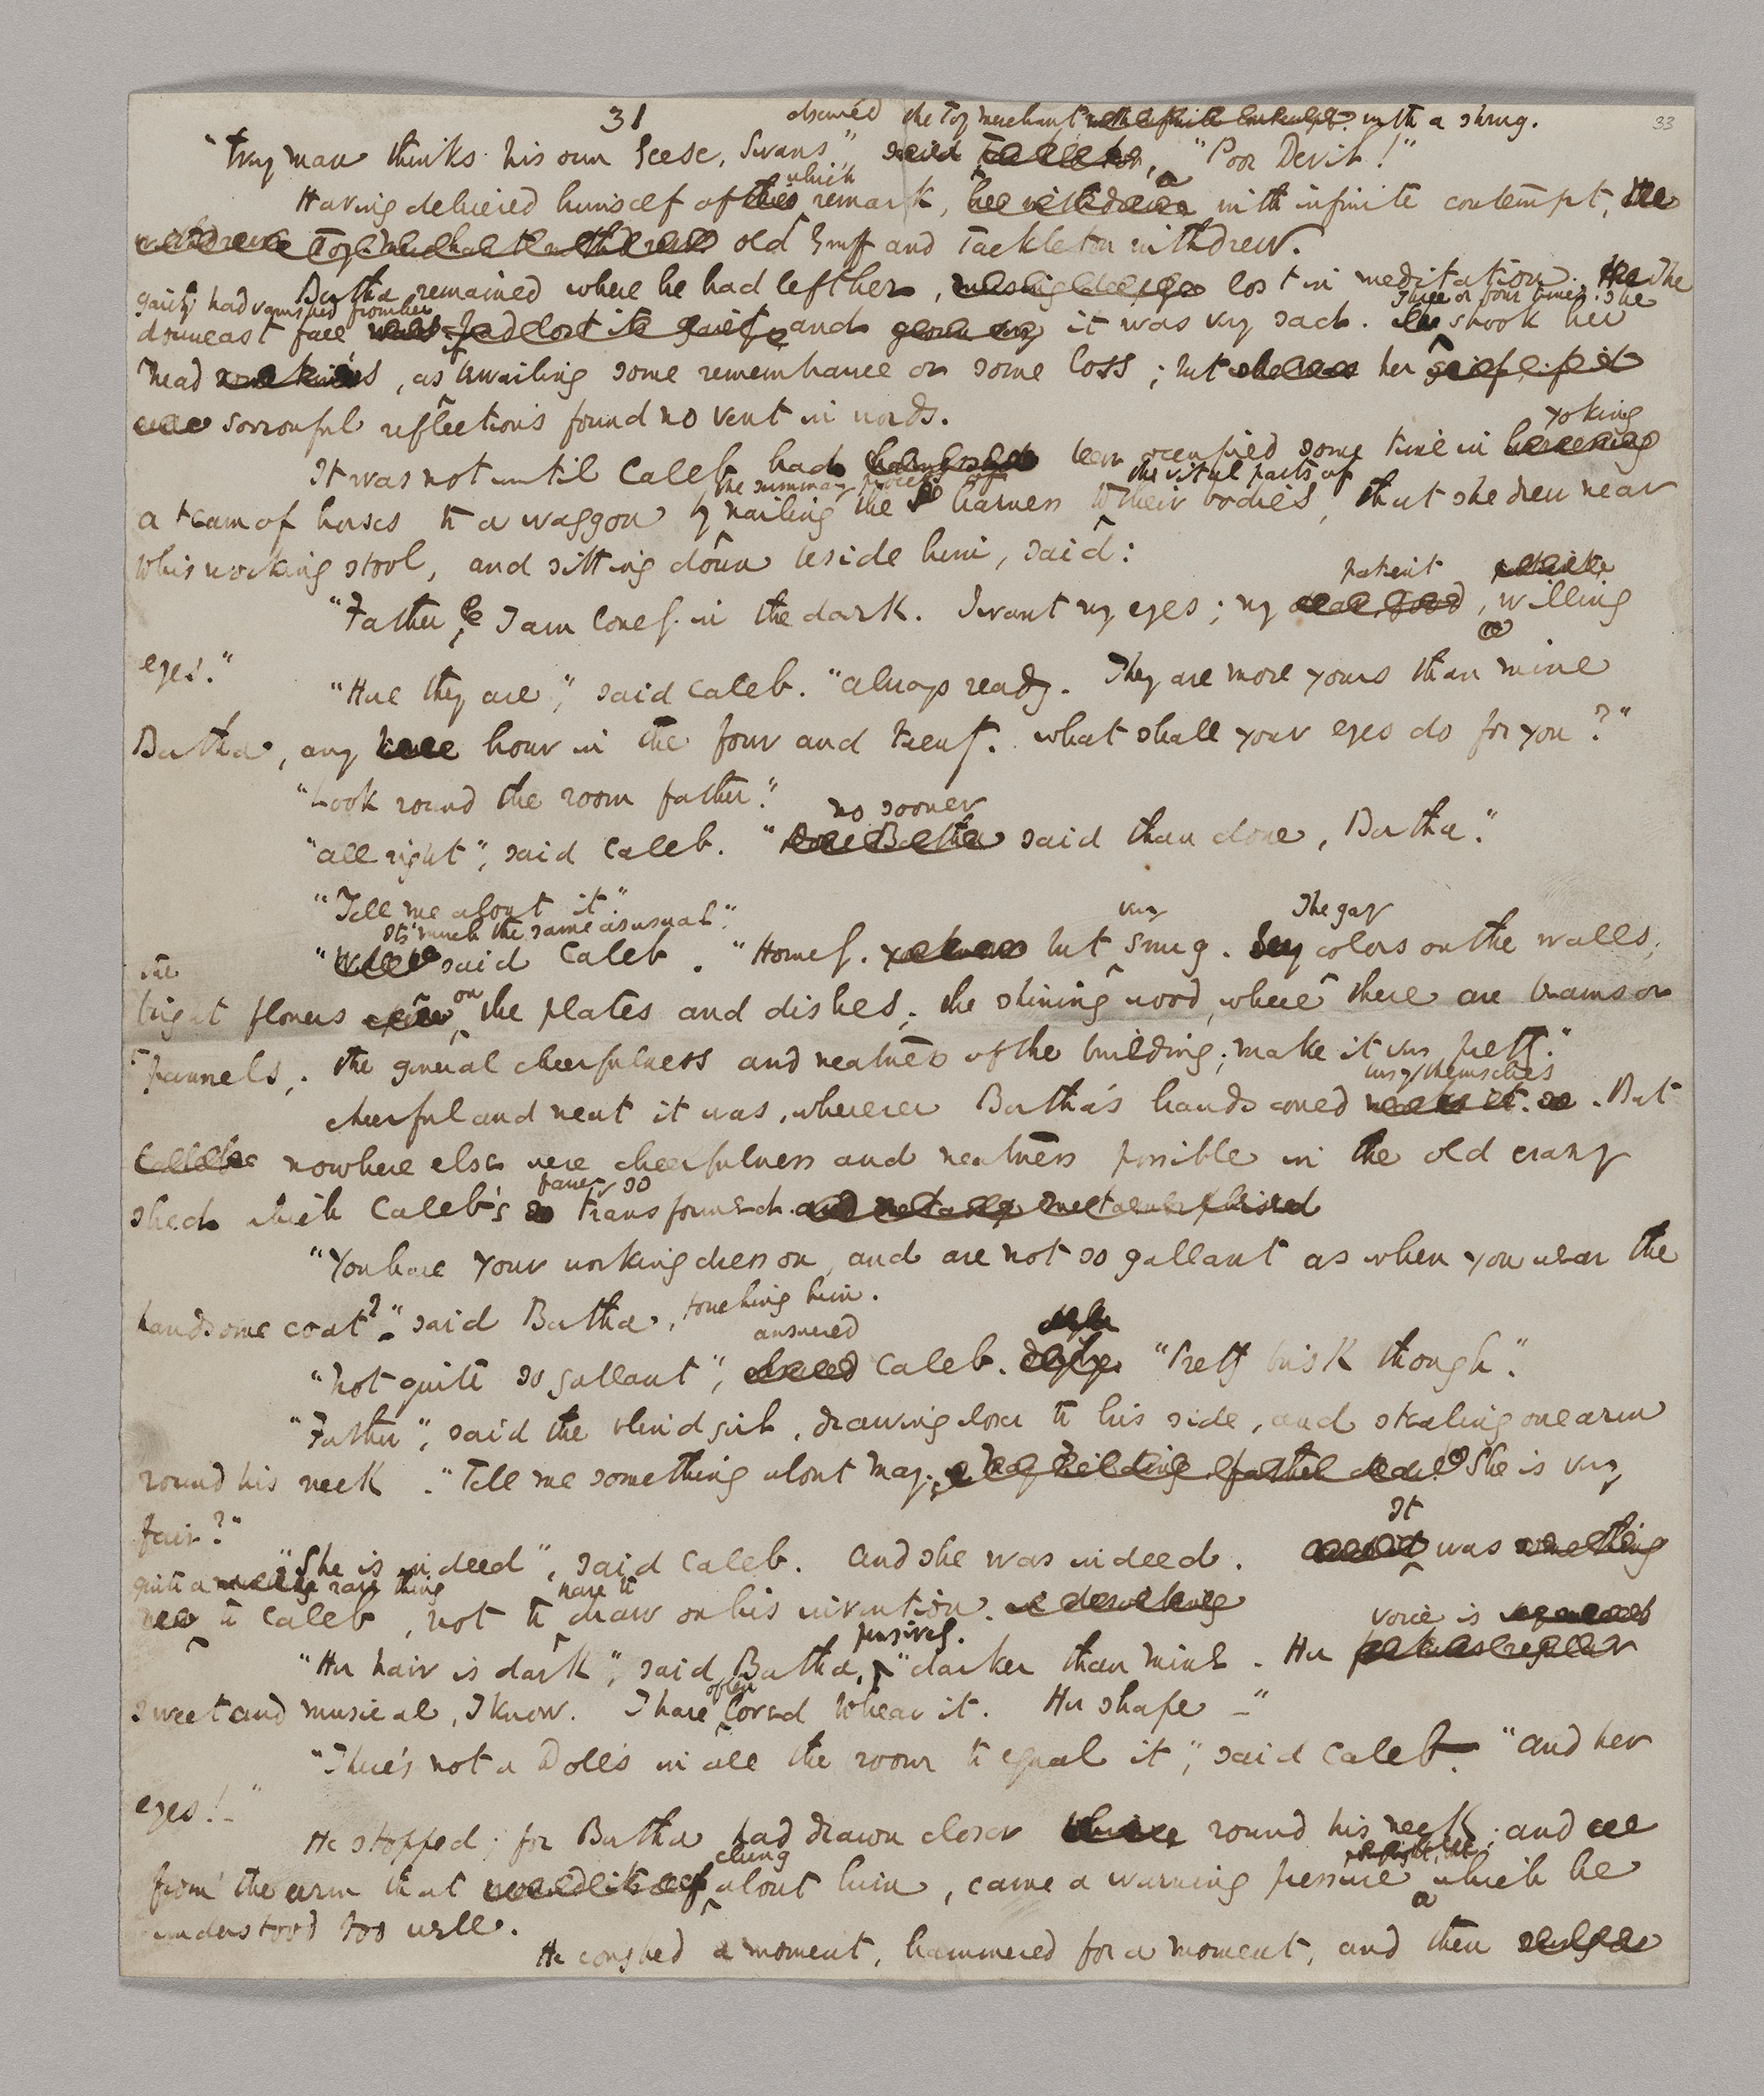 31
33
observed the Toy merchant with a shrug.
"Every man thinks his own Geese, Swans" said Tackleton, "Poor Devil!"
which
Having delivered himself of this remark, he withdrew with infinite contempt, the
old Gruff and Tackleton withdrew.
Bertha remained where he had left her, lost in meditation. The
gaiety had vanished from her
downcast face and it was very sad. Three or four times, she shook her
head, as if bewailing some remembrance or some loss; but her
sorrowful reflections found no vent in words.
yoking
It was not until Caleb had been occupied some time in
the summary process of
the vital parts of
a team of horses to a waggon by nailing the harness to their bodies, that she drew near
to his working stool, and sitting down beside him, said:
patient
"Father, I am lonely in the dark. I want my eyes; my dear, good, willing
eyes."
"Here they are", said Caleb. "Always ready. They are more yours than mine
Bertha, any hour in the four and twenty. What shall your eyes do for you?"
"Look round the room father."
no sooner
"All right", said Caleb. " said than done, Bertha."
"Tell me about it"
It's much the same as usual".
very
The gay
"Well said Caleb. "Homely but snug. colors on the walls,
the
bright flowers on the plates and dishes; the shining wood, where there are beams or
pannels; the general cheerfulness and neatness of the building; make it very pretty."
busy themselves
Cheerful and neat it was, wherever Bertha's hands could. But
nowhere else were cheerfulness and neatness possible in the old crazy
fancy so
shed which Caleb's so transformed.
"You have your working dress on, and are not so gallant as when you wear the
handsome coat?" said Bertha, touching him.
answered
"Not quite so gallant", Caleb. "Pretty brisk though".
"Father", said the blind girl, drawing close to his side, and stealing one arm
round his neck. "Tell me something about May. She is very
fair?"
It
"She is indeed", said Caleb. And she was indeed. was something
quite a rare thing
have to
new to Caleb, not to draw on his invention.
pensively.
voice is
"Her hair is dark", said Bertha, "darker than mine. Her
often
sweet and musical, I know. I have loved to hear it. Her shape –"
"There's not a Doll's in all the room to equal it", said Caleb. "And her
eyes! –"
He stopped; for Bertha had drawn closer round his neck; and
clung
from the arm that about him, came a warning pressure which he
understood too well.
He coughed a moment, hammered for a moment, and then